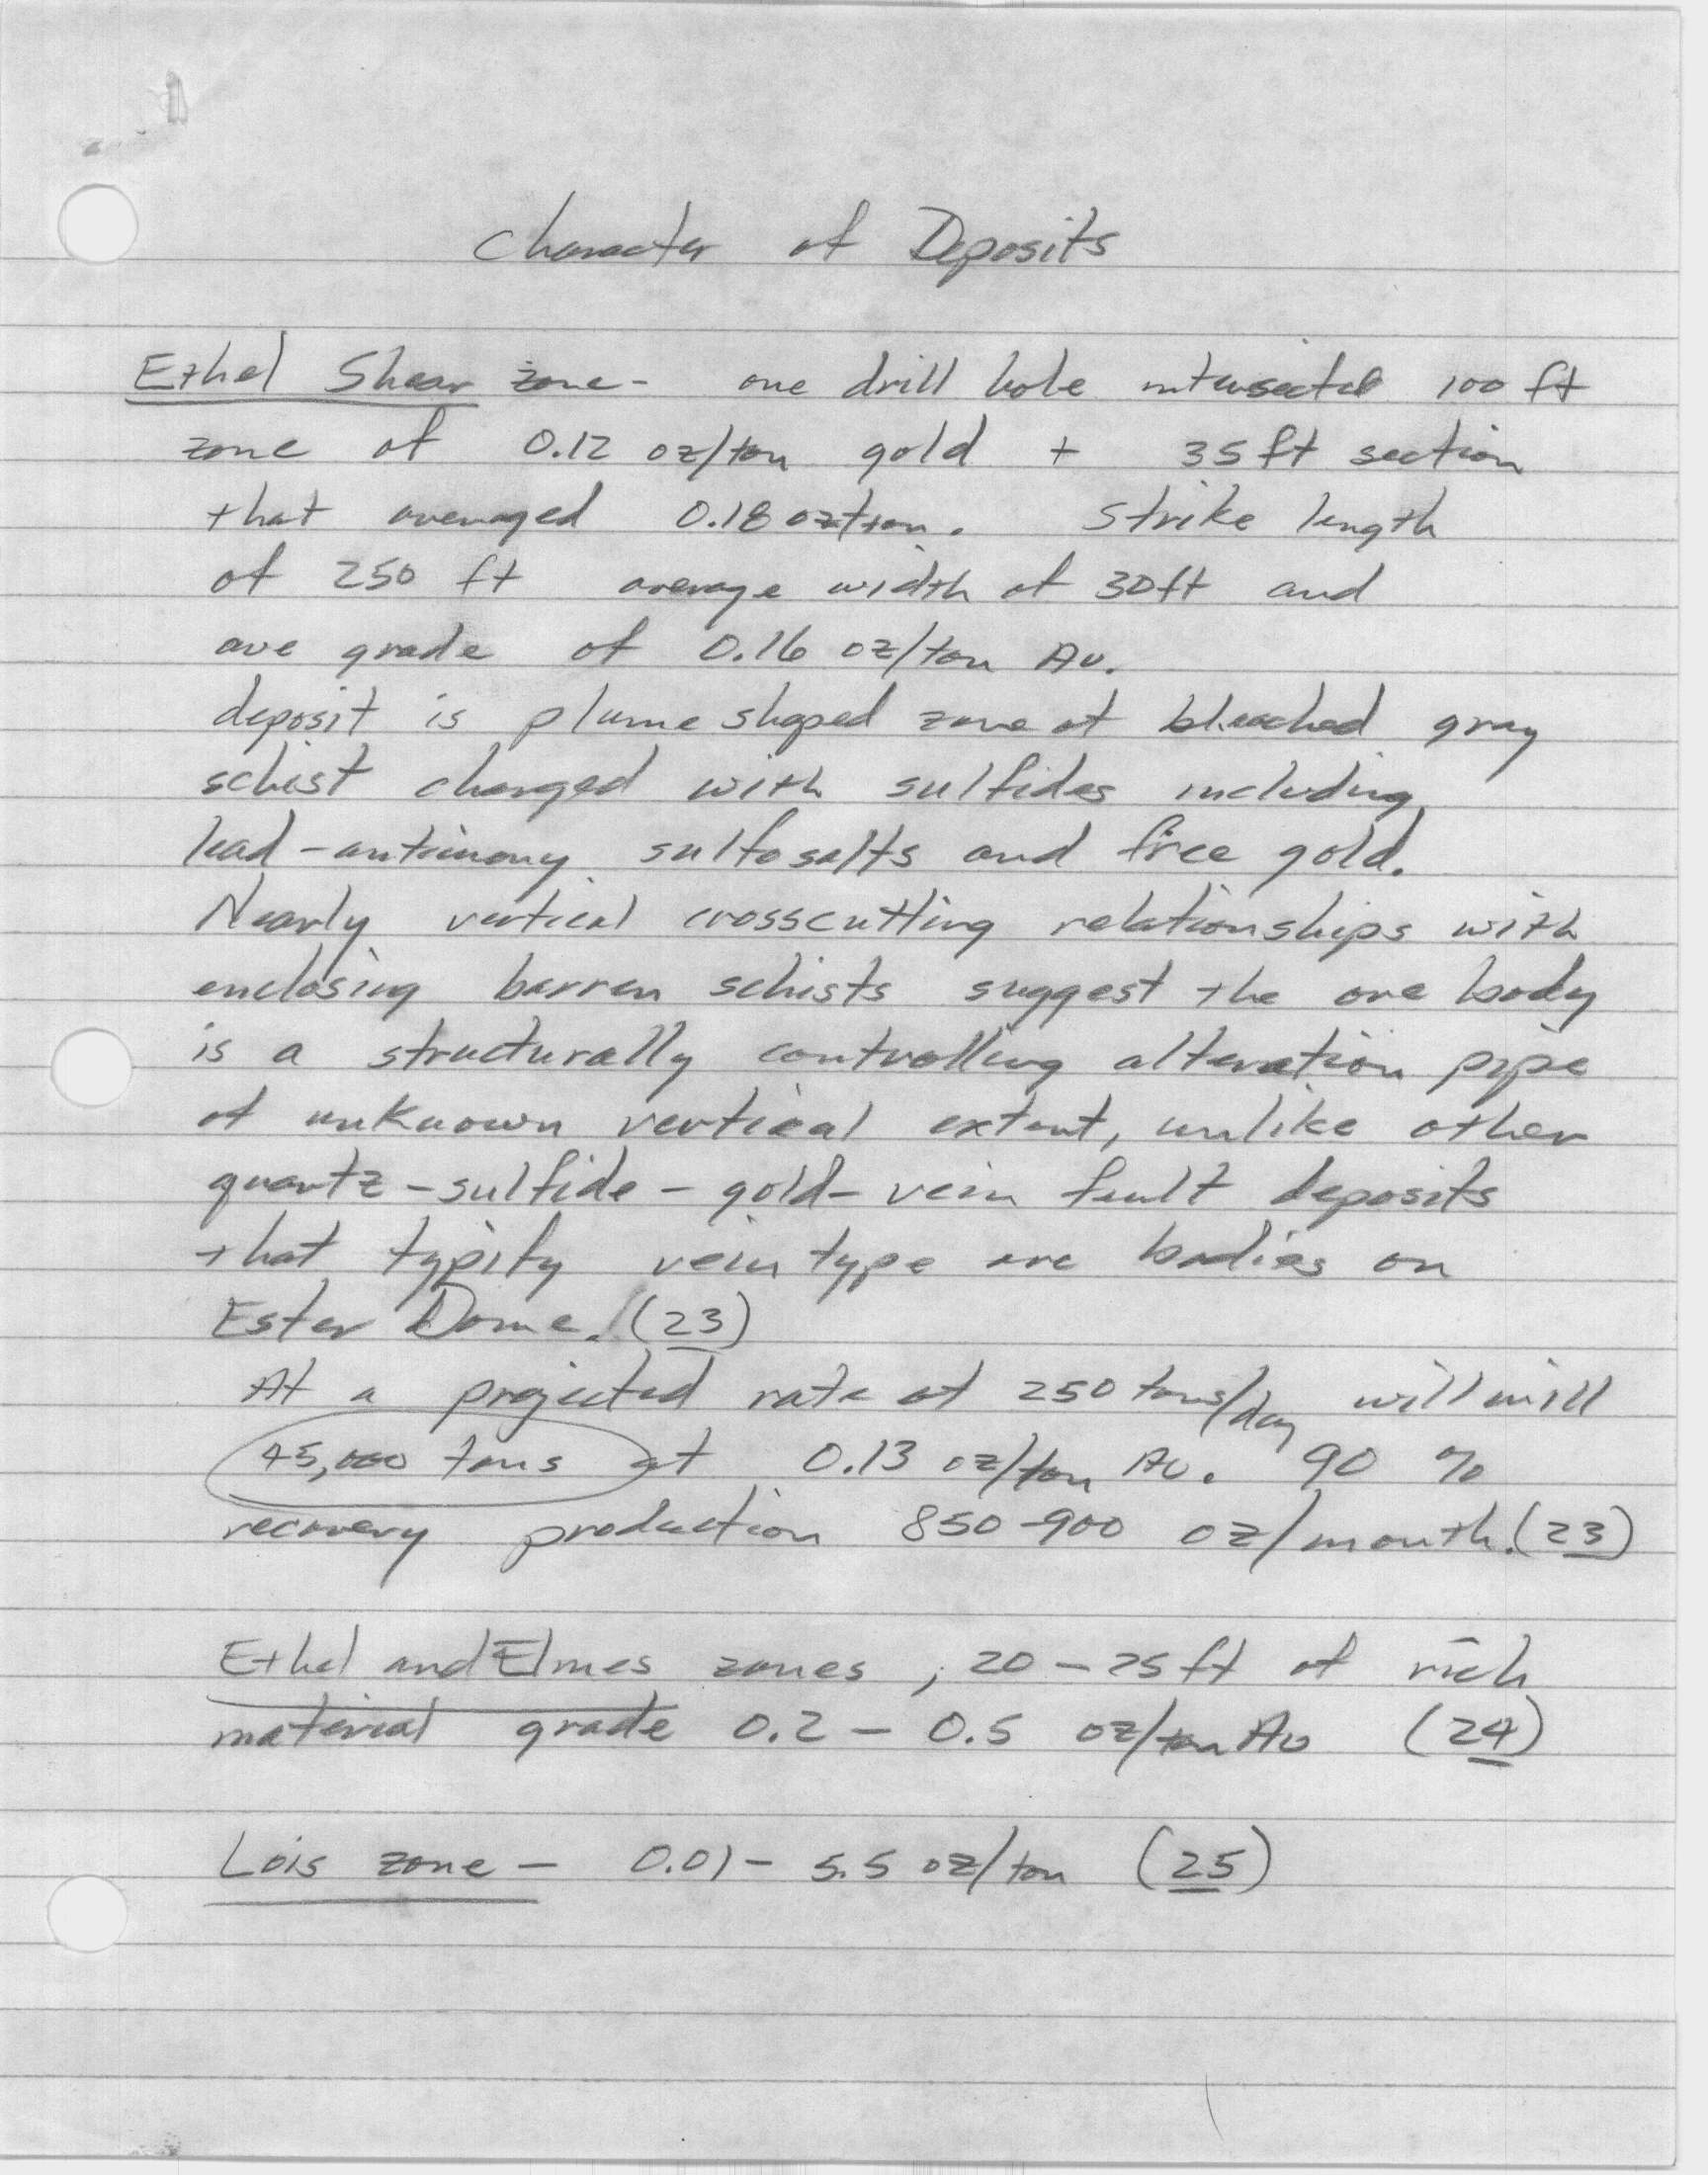 Character of Deposits
Ethel Shear zone - one drill hole intersected 100 ft
zone of 0.12 oz/ton gold + 35 ft section
that averaged 0.18 oz/ton. Strike length
of 250 ft average width of 30ft and
ave grade of 0.16 oz/ton Au.
deposit is plume shaped zone of bleached gray
schist charged with sulfides including
lead-antimony sulfosalts and free gold.
Nearly vertical crosscutting relationships with
enclosing barren schists suggest the ore body
is a structurally controlling alteration pipe
of unknown vertical extent, unlike other
quartz-sulfide-gold-vein fault deposits
that typify vein type ore bodies on
Ester Dome. (23)
At a projected rate of 250 tons/day will mill
45,000 tons at 0.13 oz/ton Au. 90 %
recovery production 850-900 oz/month. (23)
Ethel and Elmes zones, 20-25 ft of rich
material grade 0.2 - 0.5 oz/ton Au (24)
Lois zone - 0.01 - 5.5 oz/ton (25)